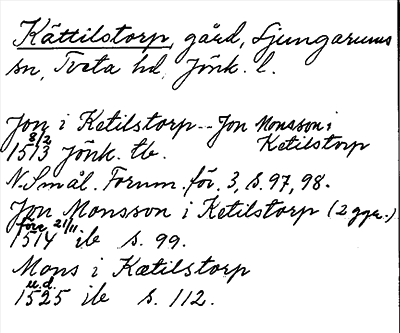 Kättilstorp, gård, Ljungarums
sn, Tveta hd, Jönk. l.
Jon i Ketilstorp -- Jon Monsson i
Ketilstorp
1513 8/2 Jönk. tb.
N. Smål. Fornm. för. 3, s. 97, 98.
Jon Monsson i Ketilstorp (2 ggr.)
1514 före 21/11 ib s. 99.
Mons i Kætilstorp
1525 u.d. ib s. 112.